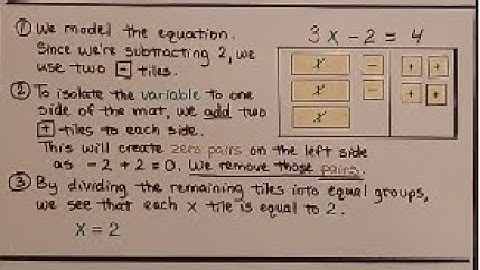 ① We model the equation.
Since we're subtracting 2, we
use two - tiles.
3x - 2 = 4
x - + +
x - + +
x
② To isolate the variable to one
side of the mat, we add two
+ tiles to each side.
This will create zero pairs on the left side
as -2 + 2 = 0. We remove those pairs.
③ By dividing the remaining tiles into equal groups,
we see that each x tile is equal to 2.
x = 2